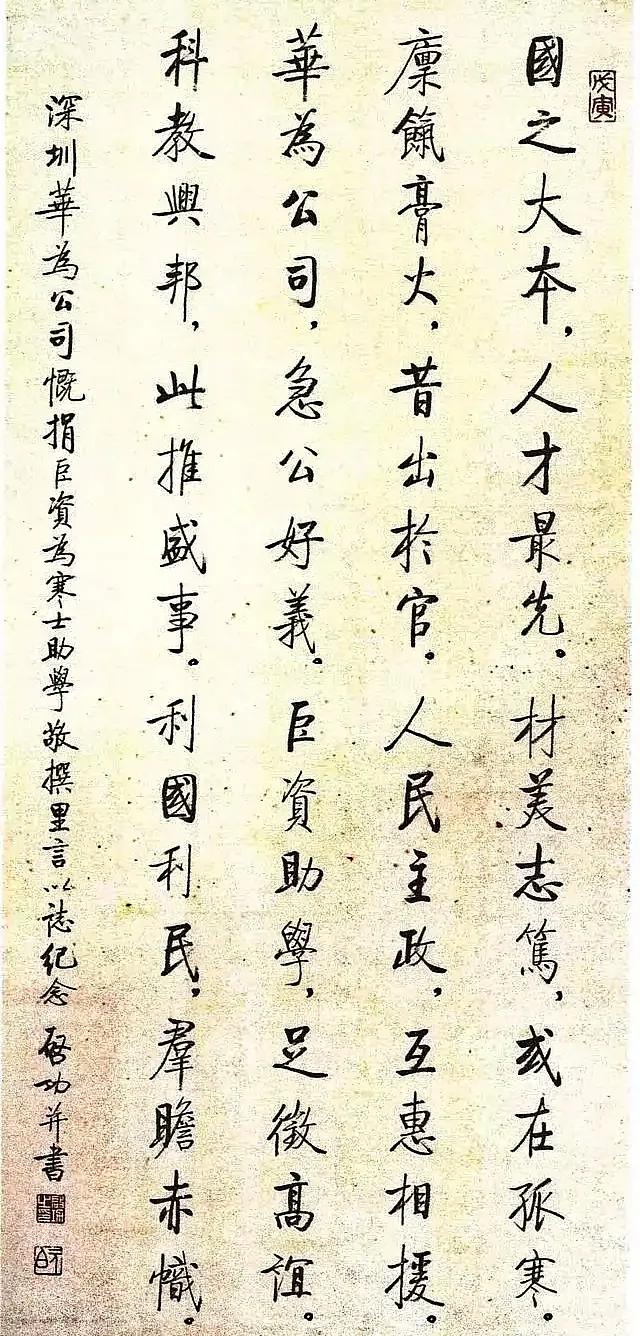 戊寅
國之大本，人才最先。材美志篤，或在孤寒。
廩餼膏火，昔出於官。人民主政，互惠相援。
華為公司，急公好義。巨資助學，足徵高誼。
科教興邦，此推盛事。利國利民，羣瞻赤幟。
深圳華為公司慨捐巨資為寒士助學敬撰里言以誌紀念 啓功并書